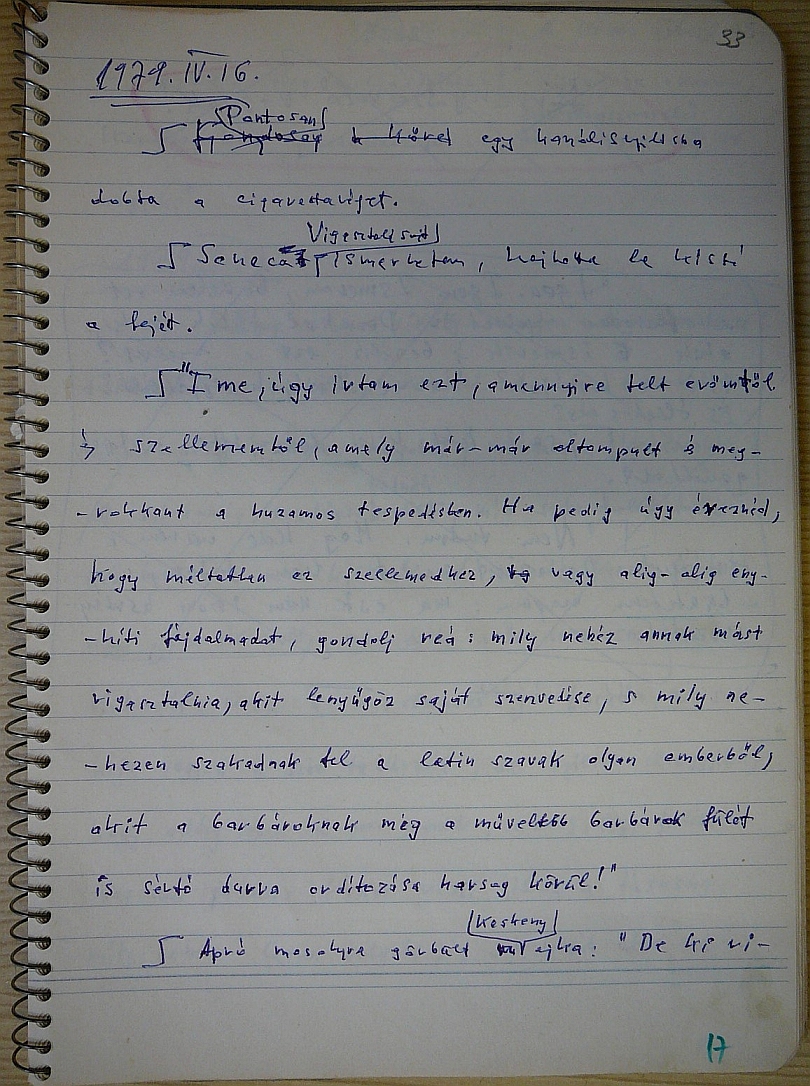 33
1979. IV. 16.
Pontosan
egy kanálisnyílásba
dobta a cigarettavéget.
Vigasztalásait
Seneca ismerhetem, hajtotta le kissé
a fejét.
"Íme, úgy írtam ezt, amennyire telt erőmtől
és szellememtől, amely már-már eltompult és meg-
-rokkant a huzamos tespedésben. Ha pedig úgy éreznéd,
hogy méltatlan ez szellemedhez, vagy alig-alig eny-
-híti fájdalmadat, gondolj reá: mily nehéz annak mást
vigasztalnia, akit lenyűgöz saját szenvedése, s mily ne-
-hezen szakadnak fel a latin szavak olyan emberből,
akit a barbároknak még a műveltebb barbárok fülét
is sértő durva ordítozása harsag körül!"
keskeny
Apró mosolyra görbült ajka: "De ki vi-
17